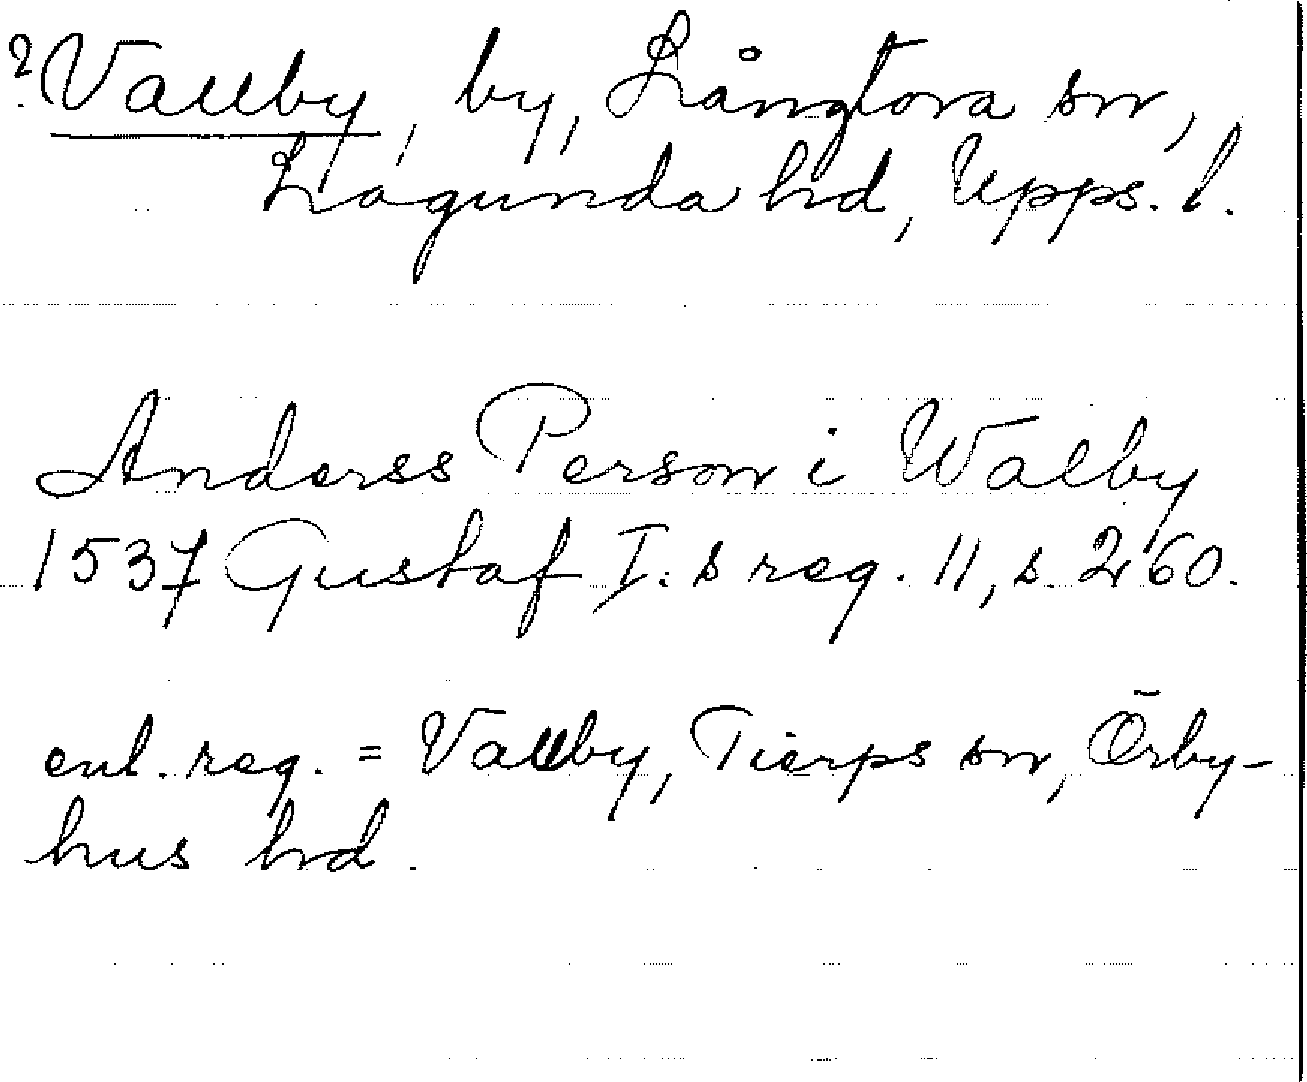 ? Vallby, by, Långtora sn,
Lagunda hd, Upps. l.
Anderss Person i Walby
1537 Gustaf I:s reg. 11, s. 260.
enl. reg. = Vallby, Tierps sn, Örby-
hus hd.